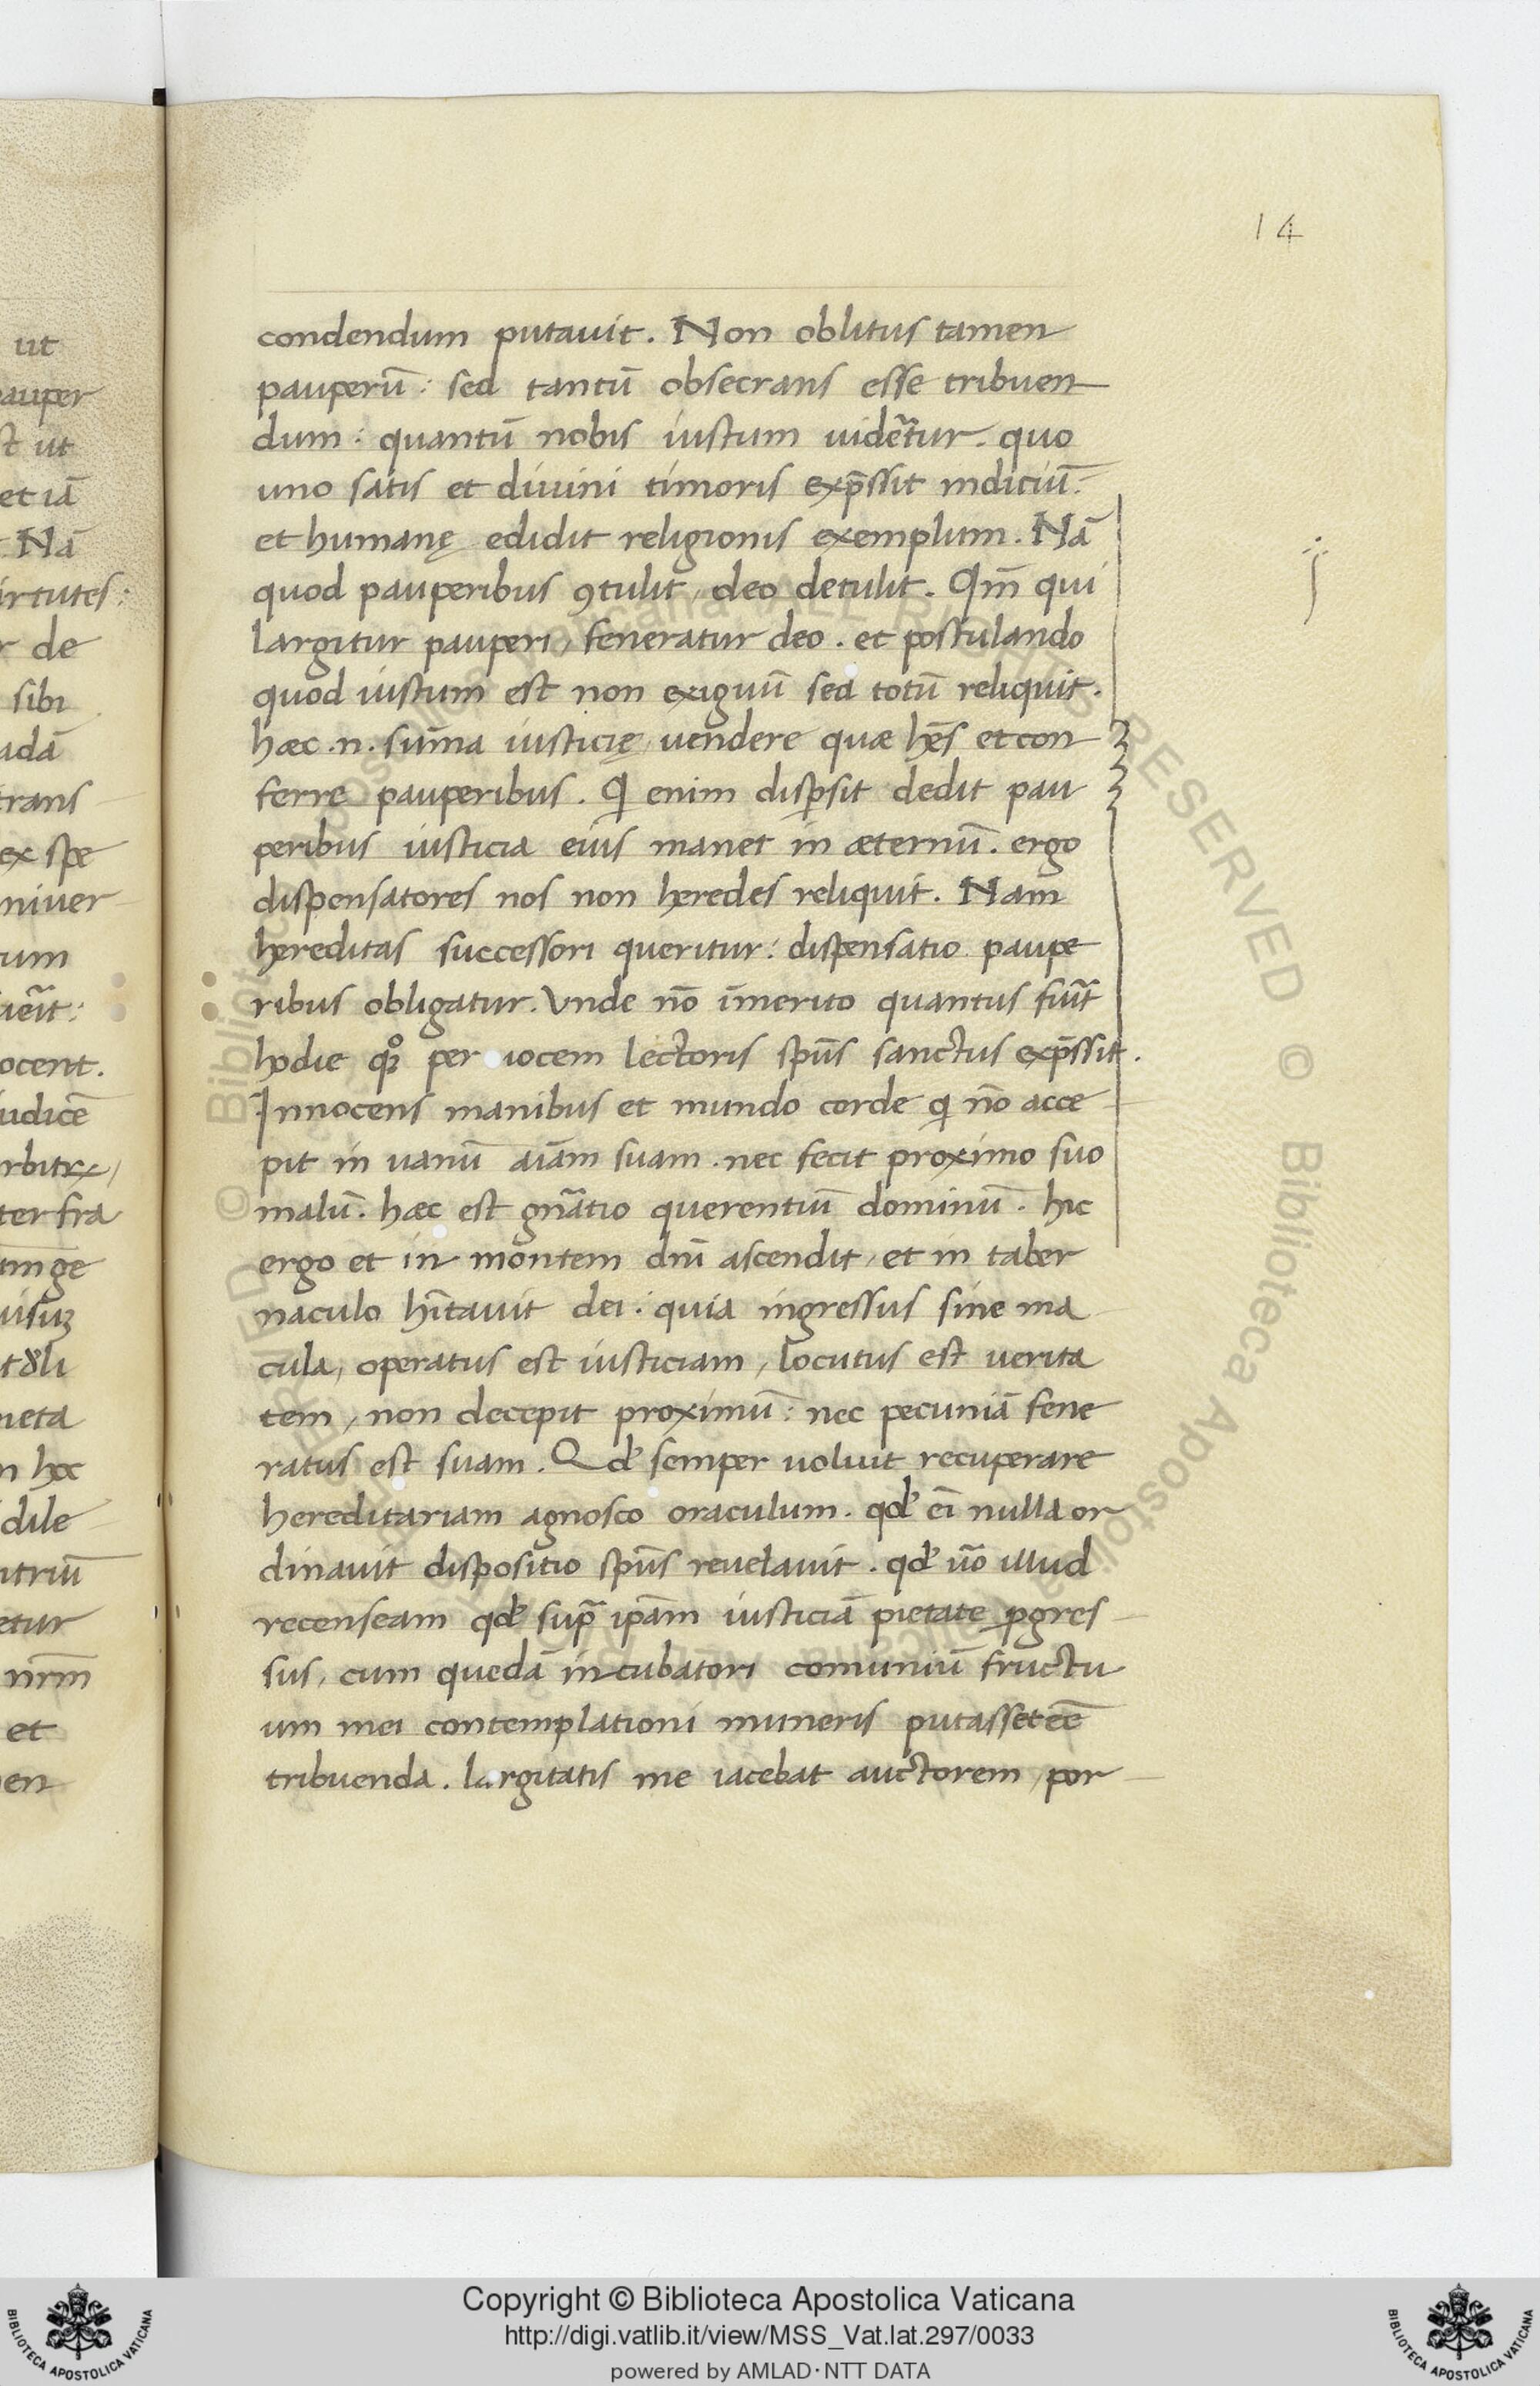 14
condendum putauit. Non oblitus tamen
pauperū: sed tantū obsecrans esse tribuen
dum: quantū nobis iustum uidēr̃tur. quo
uno satis et diuini timoris exp̄ssit indiciū:
et humanę edidit religionis exemplum. Nā
quod pauperibus ꝯtulit, deo detulit. Qm̄ qui
largitur pauperi, feneratur deo. et postulando
quod iustum est non exiguū sed totū reliquit.
hæc .n. sum̄a iusticię, uendere quæ hēs et con
ferre pauperibus. Qi enim disꝑsit dedit pau
peribus iusticia eius manet in æternū. ergo
dispensatores nos non heredes reliquit. Nam
hereditas successori queritur: dispensatio paupe
ribus obligatur. Vnde nō īmerito quantus fuit̃
hodie per uocem lectoris spūs sanctus exp̄ssit.
Innocens manibus et mundo corde qi nō acce
pit in uanū aīam suam. nec fecit proximo suo
malū. hæc est gnãtio querentiū dominū. hic
ergo et in montem dnī ascendit, et in taber
naculo hītauit dei: quia ingressus sine ma
cula, operatus est iusticiam, locutus est uerita
tem, non decepit proximū: nec pecuniā fene
ratus est suam. Qd' semper uoluit recuperare
hereditariam agnosco oraculum. qd' eī nulla or
dinauit dispositio spūs reuelauit. qd' uõ illud
recenseam qd' sup̃ ipām iusticiā pietate ꝓgres
sus, cum quedā incubatori comuniū fructu
um mei contemplationi muneris putasset eē
tribuenda. largitatis me iacebat auctorem, por
ut
pauper
ut
et iā
Nā
irtutes:
de
sibi
adā
trans
ex spe
niuer
tum
ocent.
iudicē
ter fra
neta
n hoc
dile
etur
nrm̄
et
en
Copyright © Biblioteca Apostolica Vaticana
http://digi.vatlib.it/view/MSS_Vat.lat.297/0033
powered by AMLAD·NTT DATA
BIBLIOTECA APOSTOLICA VATICANA
BIBLIOTECA APOSTOLICA VATICANA